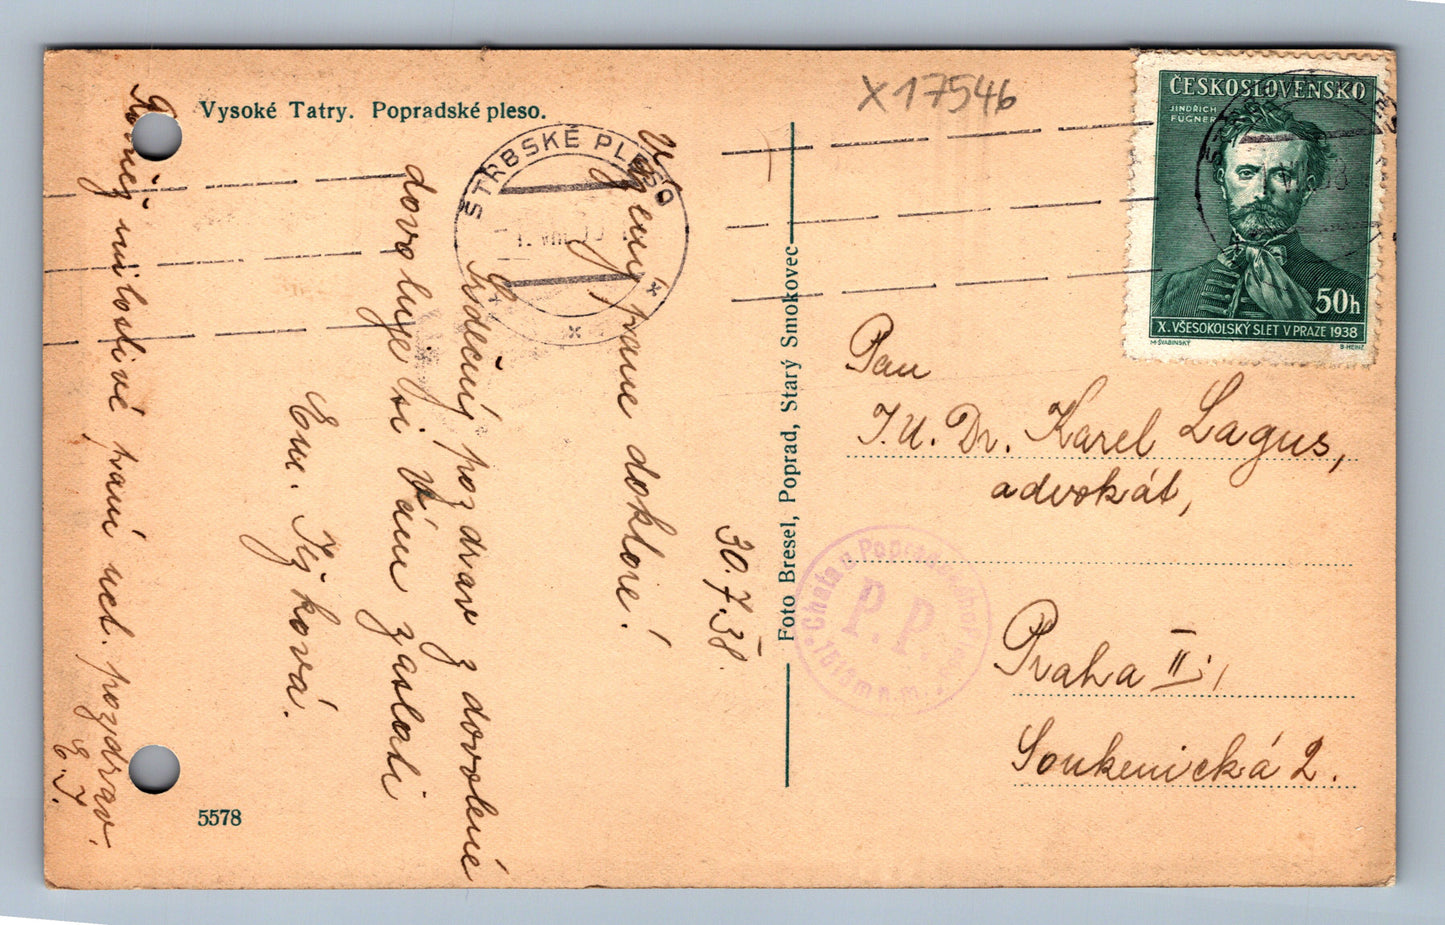 Vysoké Tatry. Popradské pleso.
X17546
ČESKOSLOVENSKO
JINDŘICH
FÜGNER
50h
X. VŠESOKOLSKÝ SLET V PRAZE 1938
M.ŠVABINSKÝ
B.HEINZ
ŠTRBSKÉ PLESO
30.7.38.
pane doktore!
Srdečný pozdrav z dovolené
dovoluje si Vám zaslati
Em. Týková.
Rovněž milostivé paní uct. pozdrav
E.T.
Foto Bresel, Poprad, Starý Smokovec
Pan
J.U.Dr. Karel Lagus,
advokát,
Praha II.,
Soukenická 2.
Chata u Popradského Plesa
P.P.
1513m n.m.
5578